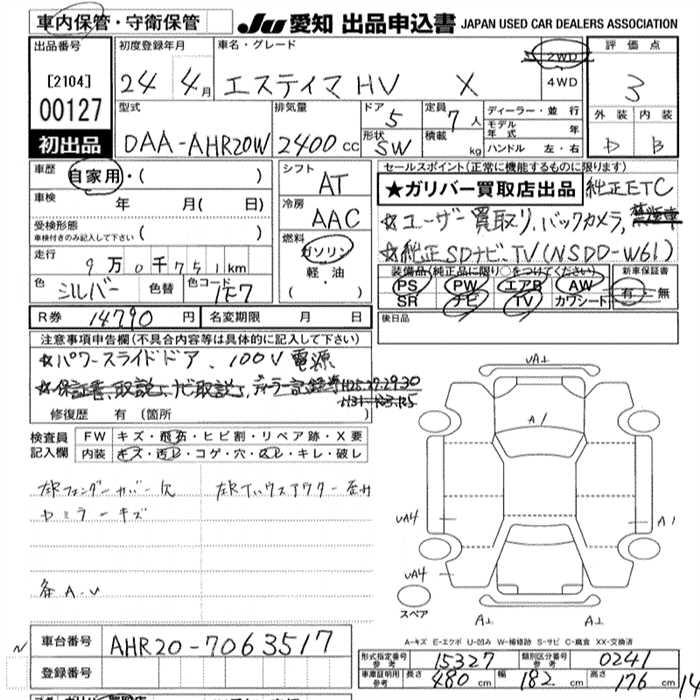 車内保管・守衛保管
JU 愛知 出品申込書 JAPAN USED CAR DEALERS ASSOCIATION
出品番号 初度登録年月 車名・グレード 2WD 評価点
[2104] 24年 4月 エスティマHV X 4WD 3
00127 型式 排気量 ドア 5 定員 7人 ディーラー・並行 外装 内装
モデル年式 年
初出品 DAA-AHR20W 2400cc 形状 SW 積載 kg ハンドル 左・右 D B
車歴 自家用・( ) シフト AT セールスポイント(正常に機能するものに限ります)
車検 年 月( 日) 冷房 AAC ★ガリバー買取店出品 純正ETC
受検形態 車検付きのみ記入して下さい ( ) ☆ユーザー買取り、バックカメラ、
燃料 ガソリン 軽油 ( ・ ) ☆純正SDナビ、TV(NSDD-W61)
走行 9万0千751km 装備品(純正品に限り○をつけてください) 新車保証書
色 シルバー 色替 色コード 1E7 PS PW エアB AW 有・無
SR ナビ TV カワシート
R券 14790円 名変期限 月 日 後日品
注意事項申告欄(不具合内容等は具体的に記入して下さい)
☆パワースライドドア、100V電源
☆保証書、取説、ナビ取説、ディーラー記録簿 H25.27.29.30
H31.R3.R5
修復歴 有 (箇所
検査員記入欄 FW キズ・飛石・ヒビ割・リペア跡・X要
内装 キズ・汚レ・コゲ・穴・スレ・キレ・破レ
左Rフェンダーカバー欠
ドミラーキズ
A・U
VA⊥
A1
UA4
A1
UA4
スペア A⊥ A⊥
A-キズ E-エクボ U-凹み W-補修跡 S-サビ C-腐食 XX-交換済
車台番号 AHR20-7063517 形式指定番号 参考 15327 類別区分番号 参考 0241
登録番号 車庫証明用 参考 長さ 480cm 幅 182cm 高さ 176cm